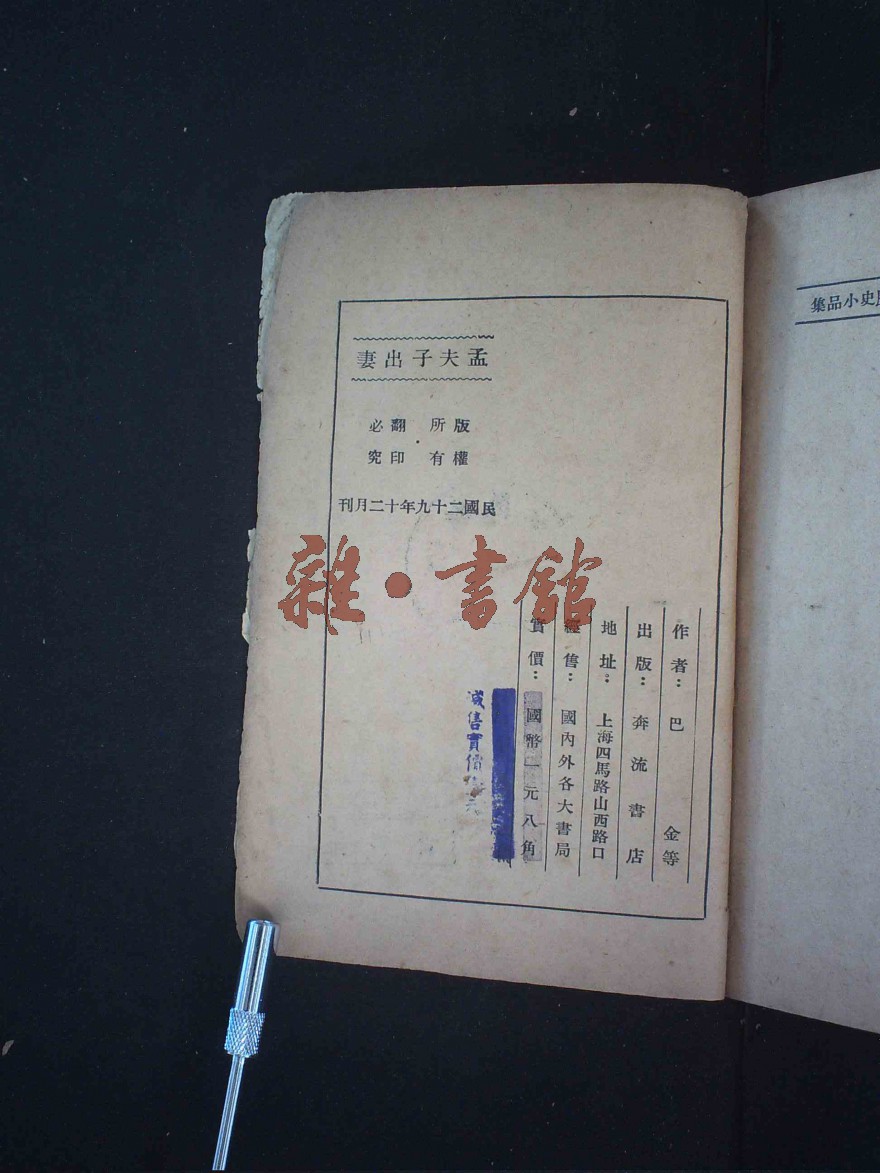 孟夫子出妻
版權所有
翻印必究
民國二十九年十二月刊
作者：巴金等
出版：奔流書店
地址：上海四馬路山西路口
經售：國內外各大書局
實價：國幣一元八角
減售實價
史小品集
雜·書館